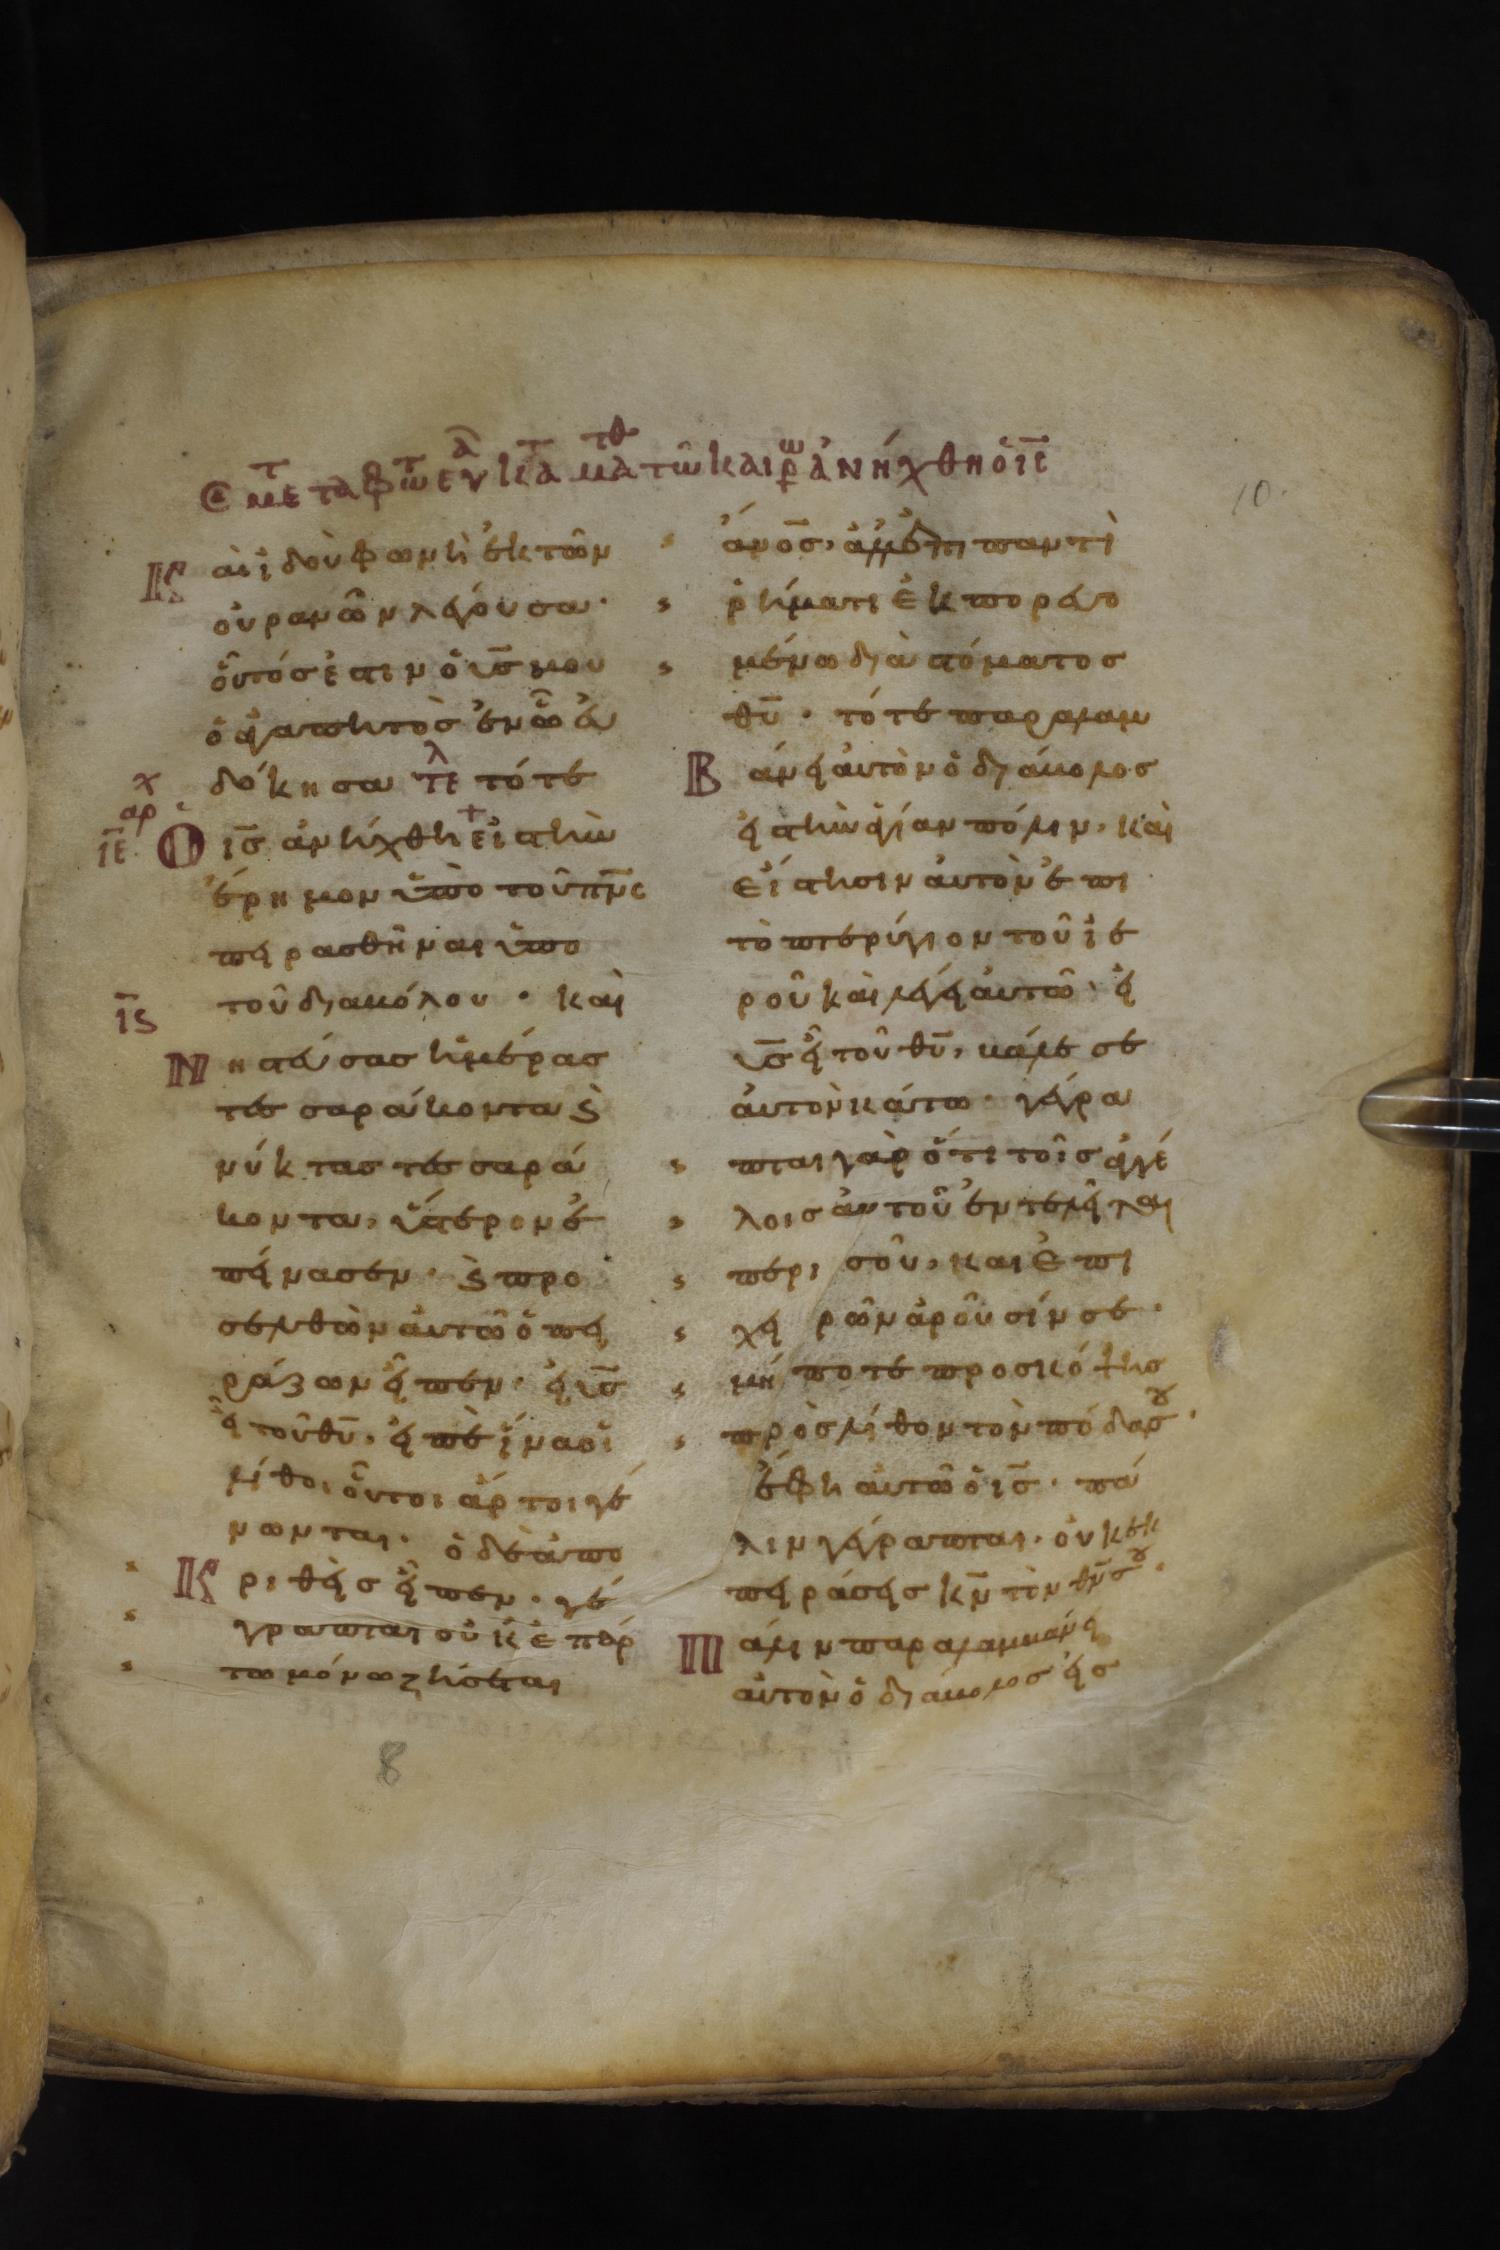 10.
Καὶ ἰδοὺ φωνὴ ἐκ τῶν
οὐρανῶν λέγουσα·
οὗτός ἐστιν ὁ υ̅ς̅ μου
ὁ ἀγαπητὸς ἐν ὧ εὐ
δόκησα τε τότε
ιε ὁ ι̅ς̅ ἀνήχθη εἰς τὴν
ἔρημον ὑπὸ τοῦ π̅ν̅ς̅
πειρασθῆναι ὑπὸ
τοῦ διαβόλου· καὶ
ις
Νηστεύσας ἡμέρας
τεσσαράκοντα ϗ
νύκτας τεσσαρά
κοντα, ὕστερον ἐ
πείνασεν· ϗ προ
σελθὼν αὐτῶ ὁ πει
ράζων εἶπεν· εἰ υ̅ς̅
εἶ τοῦ θ̅υ̅, εἰπὲ ἵνα οἱ
λίθοι οὗτοι ἄρτοι γέ
νωνται· ὁ δὲ ἀπο
Κριθεὶς εἶπεν· γέ
γραπται οὐκ ἐπ αρ
τω μόνω ζήσεται
ἄν̅ο̅ς̅, ἀλλ' ἐν παντὶ
ῥήματι ἐκπορευο
μένω διὰ στόματος
θ̅υ̅· τότε παραλαμ
Βάνει αὐτὸν ὁ διάβολος
εἰς τὴν ἁγίαν πόλιν, καὶ
ἵστησιν αὐτὸν ἐπι
τὸ πτερύγιον τοῦ ἱε
ροῦ καὶ λέγει αὐτῶ· εἰ
υ̅ς̅ εἶ τοῦ θ̅υ̅, βάλε σε
αὐτὸν κάτω· γέγρα
πται γὰρ ὅτι τοῖς ἀγγέ
λοις αὐτοῦ ἐντελεῖται
περι σοῦ, και ἐπι
χειρῶν ἀροῦσίν σε·
μή ποτε προσκόψης
πρὸς λίθον τὸν πόδα σου·
ἔφη αὐτῶ ὁ ι̅ς̅· πά
λιν γέγραπται· οὐκ ἐκ
πειράσεις κ̅ν̅ τὸν θ̅ν̅ σου·
Πάλιν παραλαμβάνει
αὐτὸν ὁ διάβολος εἰς
8